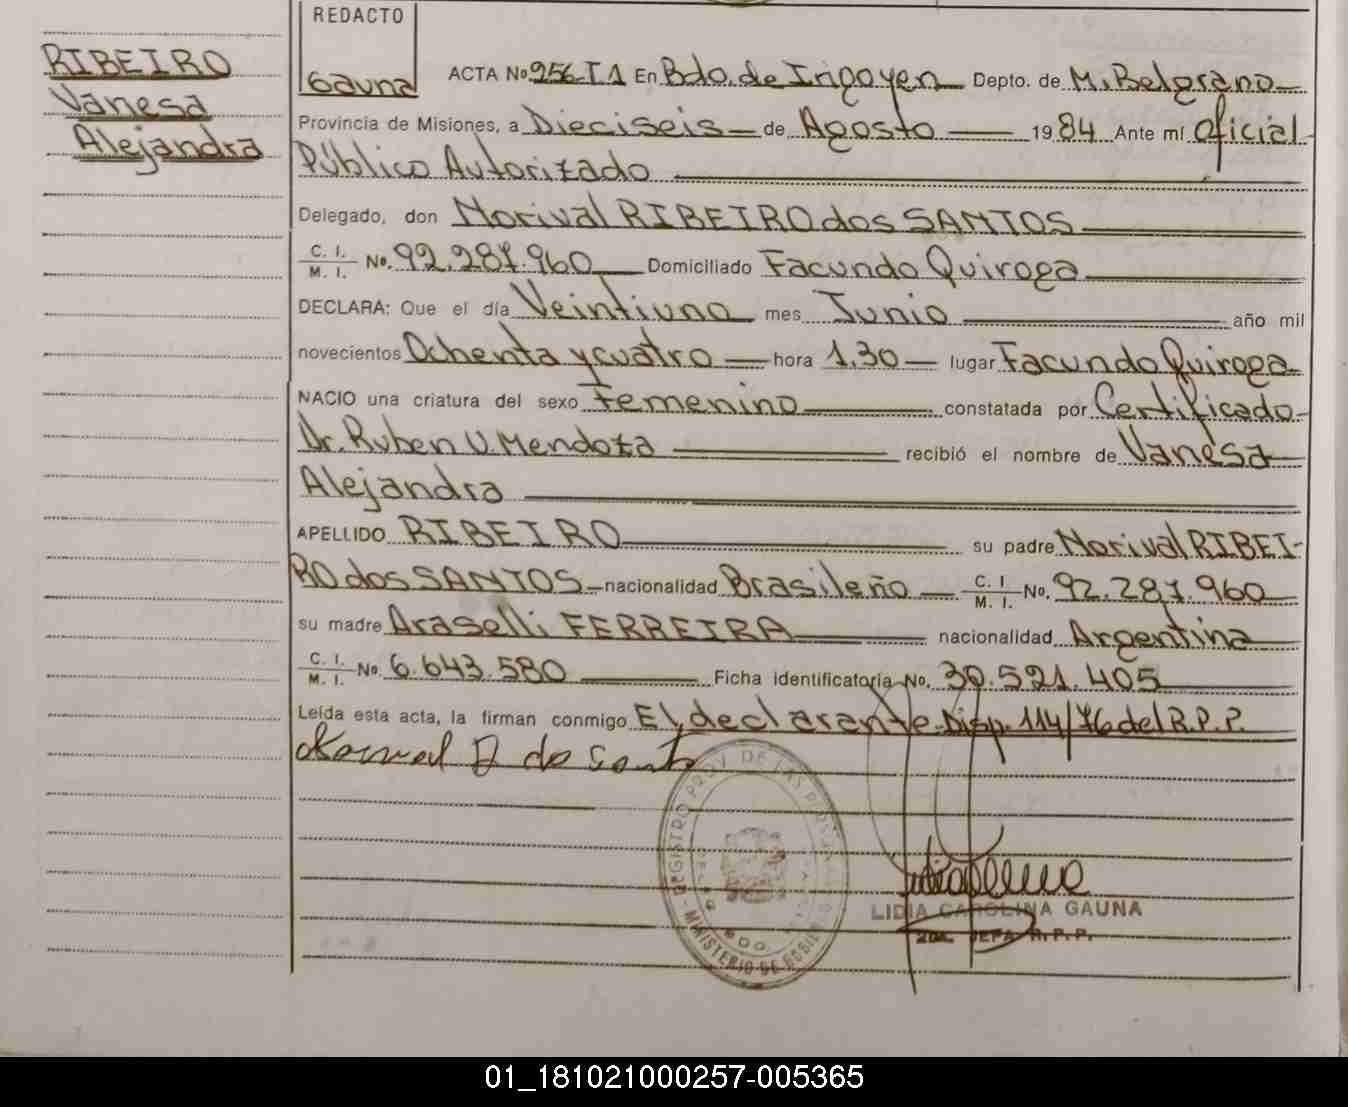 REDACTO
Gauna
RIBEIRO
Vanesa
Alejandra
ACTA No 256 T1 En Bdo. de Irigoyen Depto. de M. Belgrano
Provincia de Misiones, a Dieciseis de Agosto 1984 Ante mí Oficial
Público Autorizado
Delegado, don Norival RIBEIRO dos SANTOS
C. I. M. I. No. 92.287.960 Domiciliado Facundo Quiroga
DECLARA: Que el día Veintiuno mes Junio año mil
novecientos Ochenta y cuatro hora 1,30 lugar Facundo Quiroga
NACIO una criatura del sexo Femenino constatada por Certificado
Dr. Ruben V. Mendoza recibió el nombre de Vanesa
Alejandra
APELLIDO RIBEIRO su padre Norival RIBEI-
RO dos SANTOS nacionalidad Brasileño C. I. M. I. No. 92.287.960
su madre Araselli FERREIRA nacionalidad Argentina
C. I. M. I. No. 6.643.580 Ficha identificatoria No. 30.521.405
Leída esta acta, la firman conmigo El declarante. Disp. 114/76 del R.P.P.
REGISTRO PROV. DE LAS PERSONAS
MINISTERIO DE GOBIERNO
LIDIA CAROLINA GAUNA
2da. JEFA R.P.P.
01_181021000257-005365